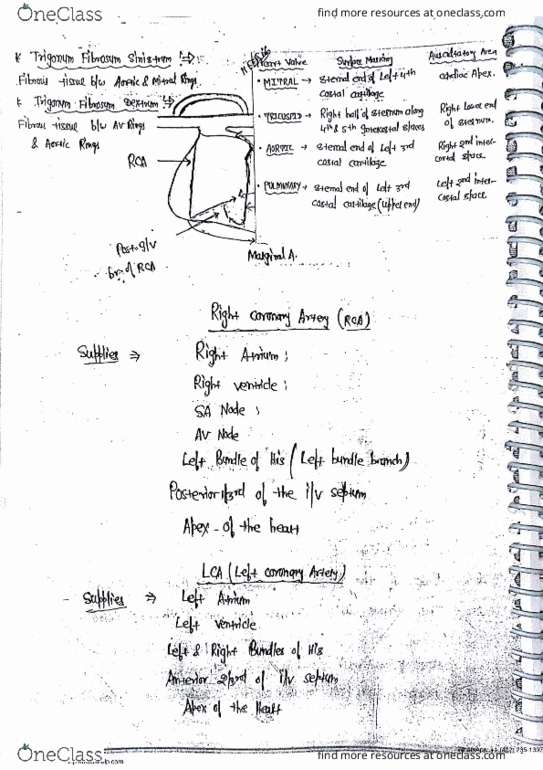 OneClass
find more resources at oneclass.com
* Trigonum Fibrosum Sinistrum ⇒
Fibrous tissue b/w Aortic & Mitral Rings.
* Trigonum Fibrosum Dextrum ⇒
Fibrous tissue b/w AV Rings
& Aortic Rings
RCA →
Post. I/V
br. of RCA
Marginal A.
Heart Valve Surface Marking Auscultatory Area
• MITRAL → Sternal end of Left 4th costal cartilage Cardiac Apex.
• TRICUSPID → Right half of sternum along 4th & 5th intercostal spaces Right lower end of sternum.
• AORTIC → sternal end of Left 3rd costal cartilage Right 2nd intercostal space
• PULMONARY → sternal end of Left 3rd costal cartilage (Upper end) Left 2nd intercostal space
Right Coronary Artery (RCA)
Supplies ⇒ Right Atrium ;
Right ventricle ;
SA Node ;
AV Node
Left Bundle of His (Left bundle branch)
Posterior 1/3rd of the I/V septum
Apex of the heart
LCA (Left coronary Artery)
Supplies ⇒ Left Atrium
Left ventricle
Left & Right Bundles of His
Anterior 2/3rd of I/V septum
Apex of the Heart
OneClass
find more resources at oneclass.com